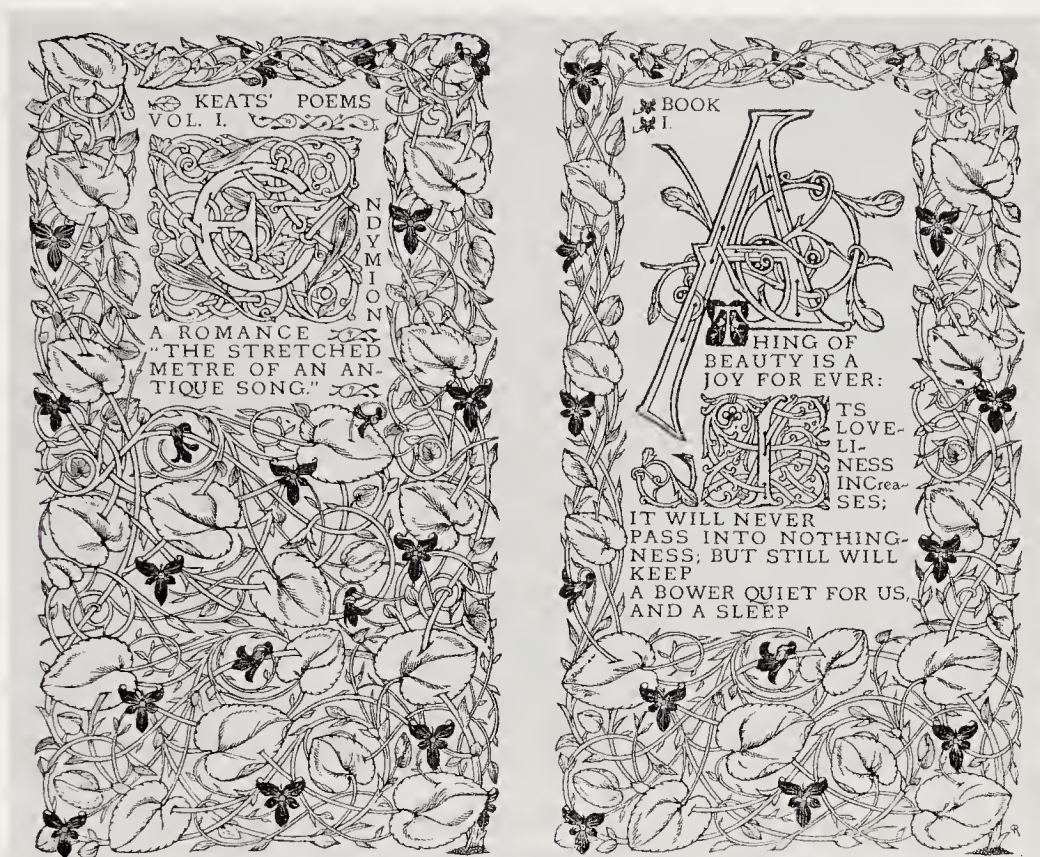 KEATS' POEMS
VOL. I.
ENDYMION
A ROMANCE
"THE STRETCHED
METRE OF AN AN-
TIQUE SONG."
BOOK
I.
A
THING OF
BEAUTY IS A
JOY FOR EVER:
ITS
LOVE-
LI-
NESS
INCrea-
SES;
IT WILL NEVER
PASS INTO NOTHING-
NESS; BUT STILL WILL
KEEP
A BOWER QUIET FOR US,
AND A SLEEP